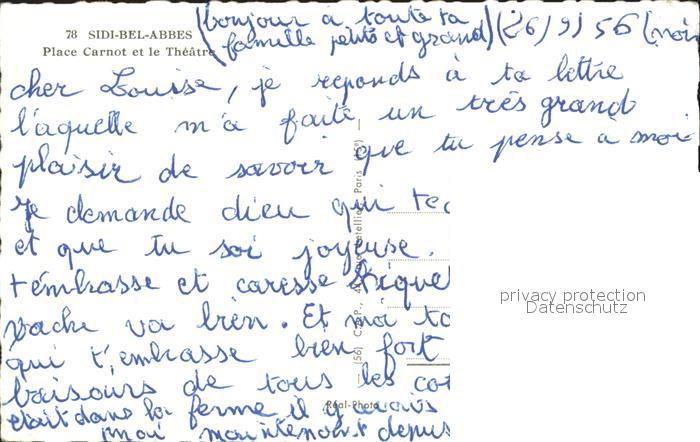 78 SIDI-BEL-ABBES
Place Carnot et le Théâtre
(bonjour à toute ta
famille petits et grand)
(26/9/56 (
cher Louisse, je reponds à ta lettre
l'aquelle m'a faite un très grand
plaisir de savoir que tu pense a moi
Je demande dieu qui te
et que tu soi joyeuse.
t'embrasse et caresse
vache va bien. Et moi
qui t'embrasse bien fort
baisours de tous les
etait dans la ferme il y
moi maintenant depuis
(56) Paris
Réal-Photo
privacy protection
Datenschutz